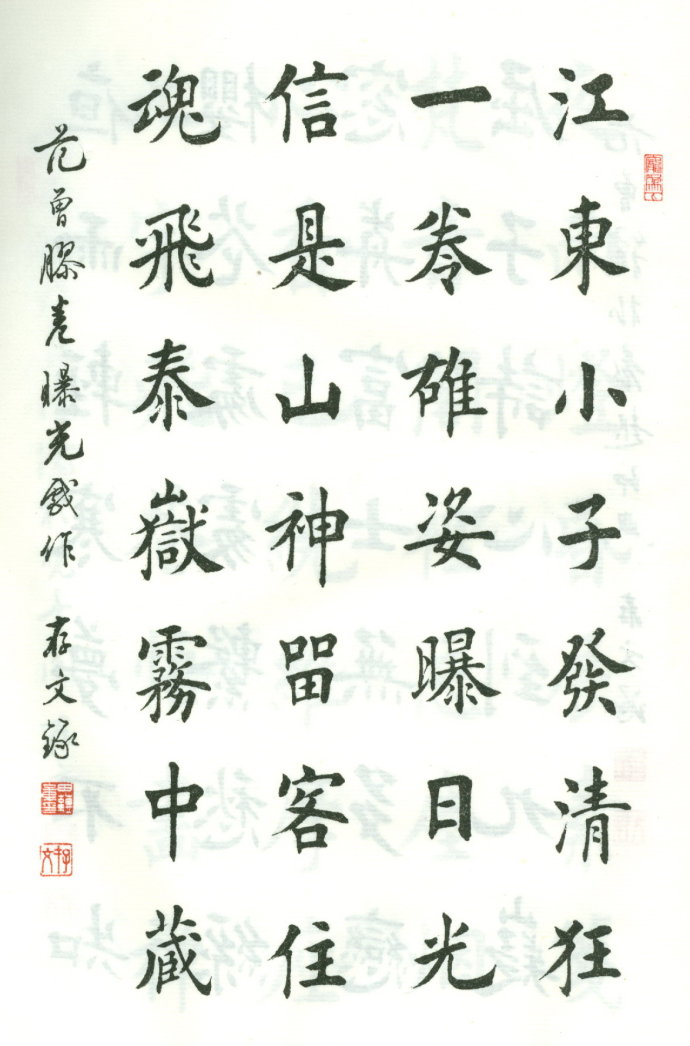 江東小子發清狂
一卷雄姿曝日光
信是山神留客住
魂飛泰嶽霧中藏
范曾膠卷曝光戲作 存文錄